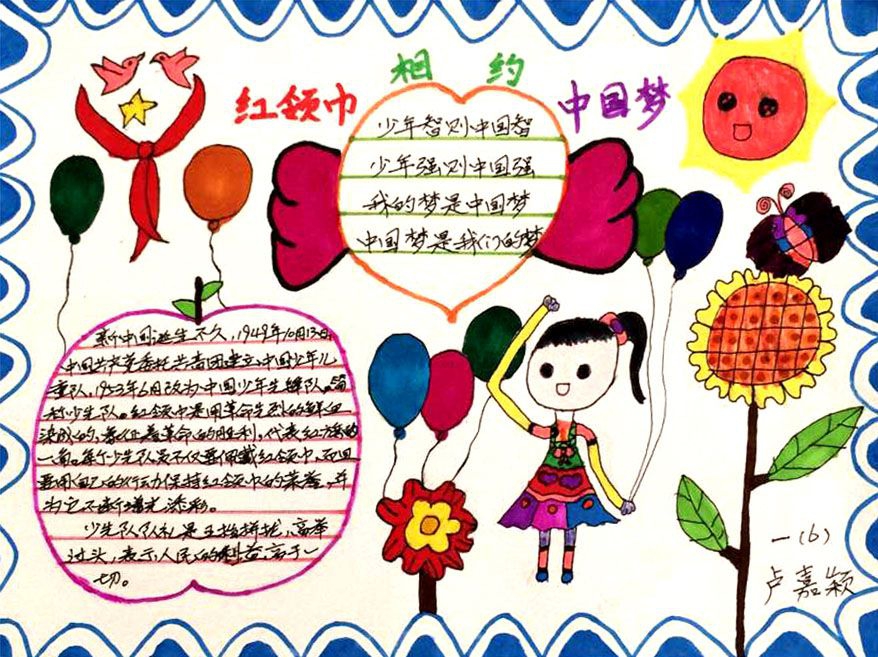 红领巾 相约 中国梦
少年智则中国智
少年强则中国强
我的梦是中国梦
中国梦是我们的梦
新中国诞生不久,1949年10月13日,
中国共产党委托共青团建立中国少年儿
童队,1953年6月改为中国少年先锋队。简
称少先队。红领巾是用革命先烈的鲜血
染成的,象征着革命的胜利,代表红旗的
一角。每个少先队员不仅要佩戴红领巾,而且
要用自己的行动保持红领巾的荣誉,并
为它不断增光添彩。
少先队队礼是五指并拢,高举
过头,表示人民的利益高于一
切。
一(6)
卢嘉颖